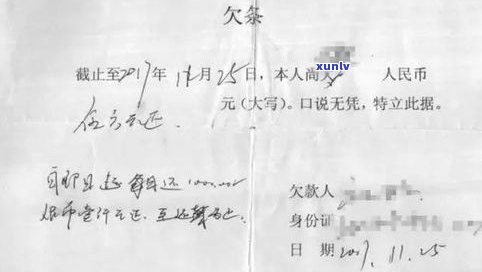 欠条
xunlv
截止至2017年11月25日，本人尚欠 人民币
伍万元正 元（大写）。口说无凭，特立此据。
自即日起 每月还1000.00
人民币壹仟元正.至还
欠款人
身份证
日 期 2017.11.25